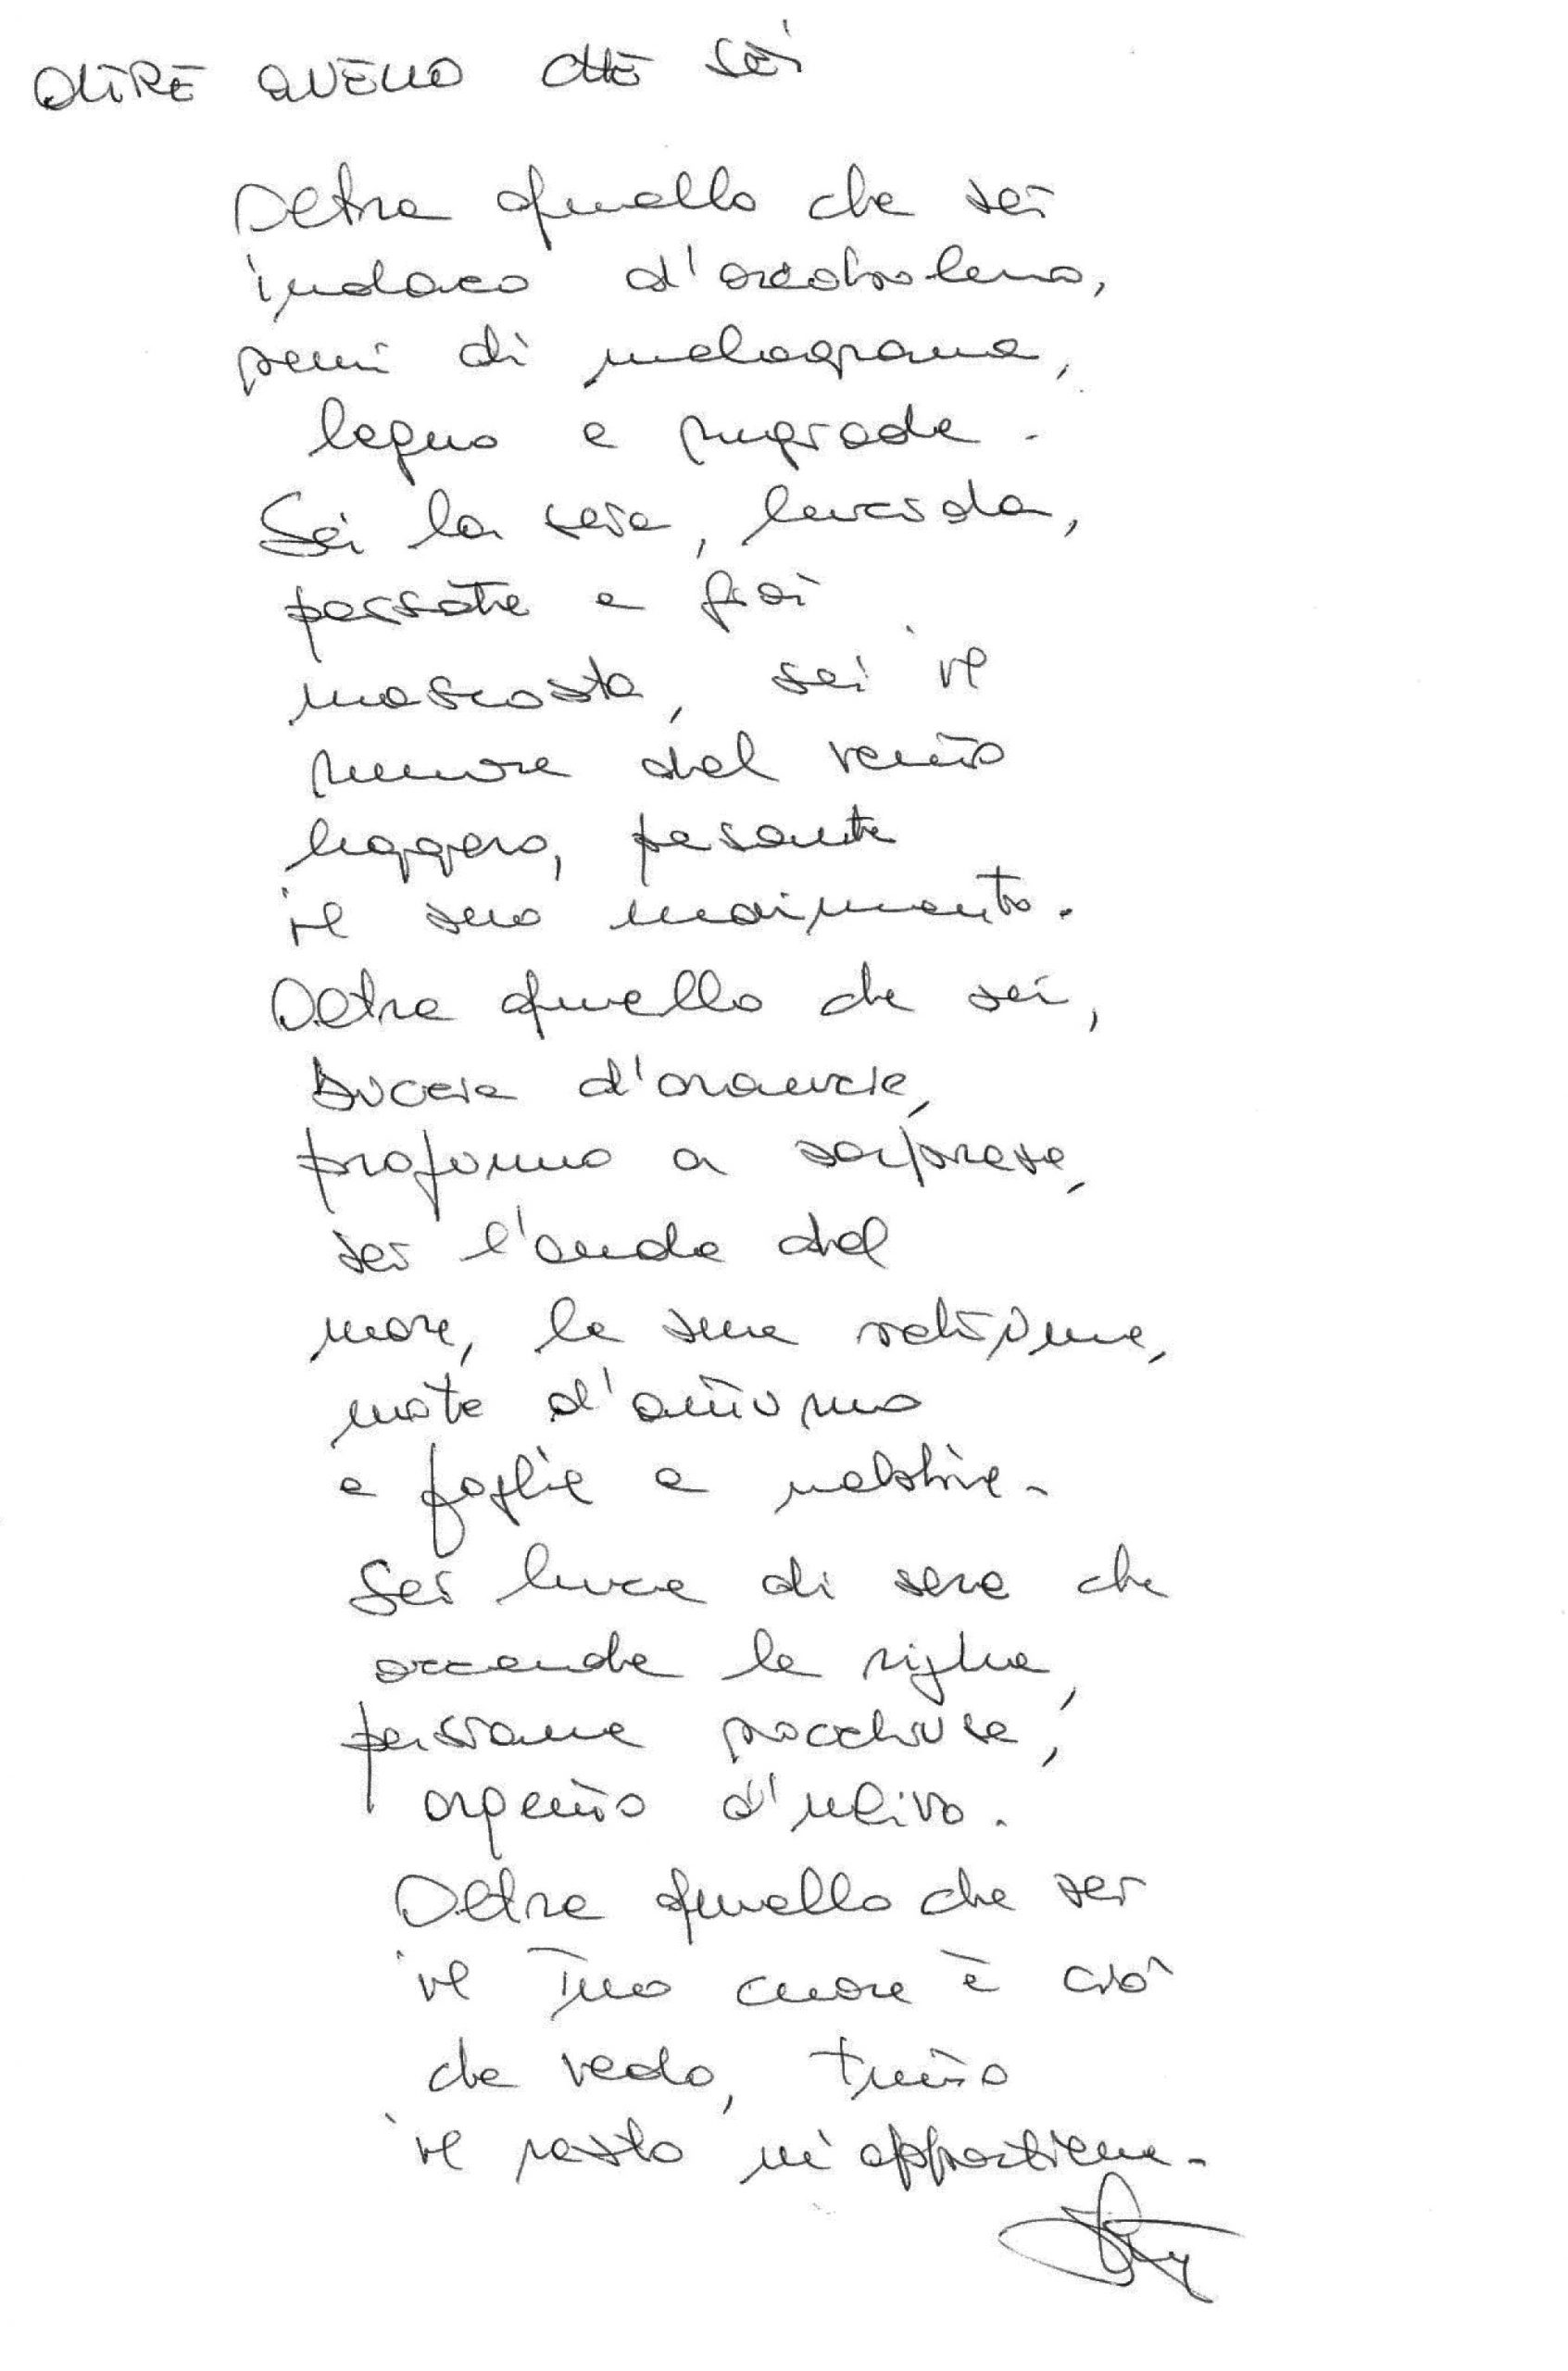 OLTRE QUELLO CHE SEI
Oltre quello che sei
indaco d'arcobaleno,
semi di melograno,
legno e rugiada.
Sei la sera, lucida,
passate e poi
nascosta, sei il
rumore del vento
leggero, pesante
il suo
Oltre quello che sei,
buccia d'arancia,
profumo a sorpresa,
sei l'onda del
mare, la sua salsedine,
note d'autunno
e foglie e nebbie.
Sei luce di sera che
accende le righe,
persiane socchiuse,
argento d'ulivo.
Oltre quello che sei
il Tuo cuore è ciò
che vedo, tutto
il resto m'appartiene.